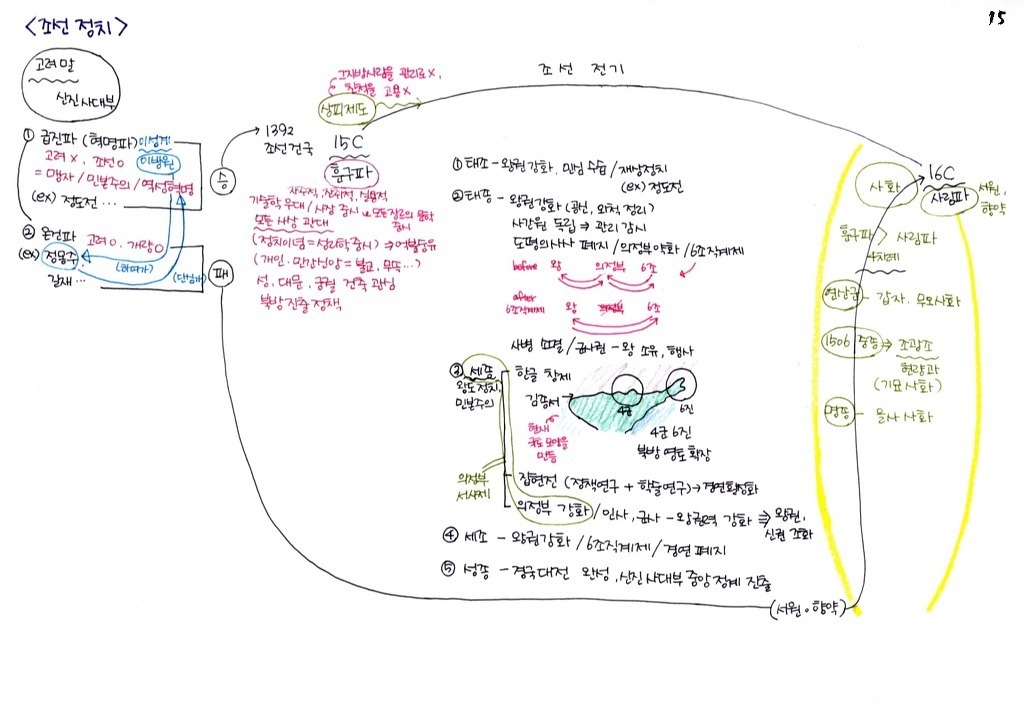 <조선 정치>
15
고려말
신진사대부
① 급진파 (혁명파) 이성계
고려 X, 조선 O 이방원
= 맹자 / 민본주의 / 역성혁명
(ex) 정도전 …
② 온건파
고려 O. 개량 O
(ex) 정몽주
(하여가)
(단심가)
길재…
승
패
1392
조선건국
그지방사람을 관리로 X,
친척을 고용 X
상피제도
15C
훈구파
자주적, 진취적, 실용적
모든 사상 관대
(정치이념 = 성리학중시)
(개인·민간신앙 = 불교, 무속…)
성, 대문, 궁궐 건축 관심
북방진출정책
조선 전기
① 태조 - 왕권강화, 민심 수습 / 재상정치
(ex) 정도전
② 태종 - 왕권강화 (공신, 외척 정리)
사간원 독립 ⇒ 관리 감시
도평의사사 폐지 / 의정부약화 / 6조직계제
before 왕 의정부 6조
after
6조직계제 왕 의정부 6조
사병 혁결 / 군사권 - 왕 소유, 행사
③ 세종
왕도정치,
민본주의
한글 창제
김종서
4군
6진
현재
국토 모양을
만듦
4군 6진
북방 영토 확장
의정부
서사제
집현전 (정책연구 + 학술연구) → 경연활성화
의정부 강화 / 인사, 군사 - 왕권력 강화 ⇒ 왕권,
신권 조화
④ 세조 - 왕권강화 / 6조직계제 / 경연 폐지
⑤ 성종 - 경국대전 완성, 신진사대부 중앙정계 진출
(서원·향약)
사화
16C
사림파
서원,
향약
훈구파 > 사림파
4차례
연산군 - 갑자, 무오사화
1506 중종 ⇒ 조광조
현량과
(기묘사화)
명종 - 을사 사화